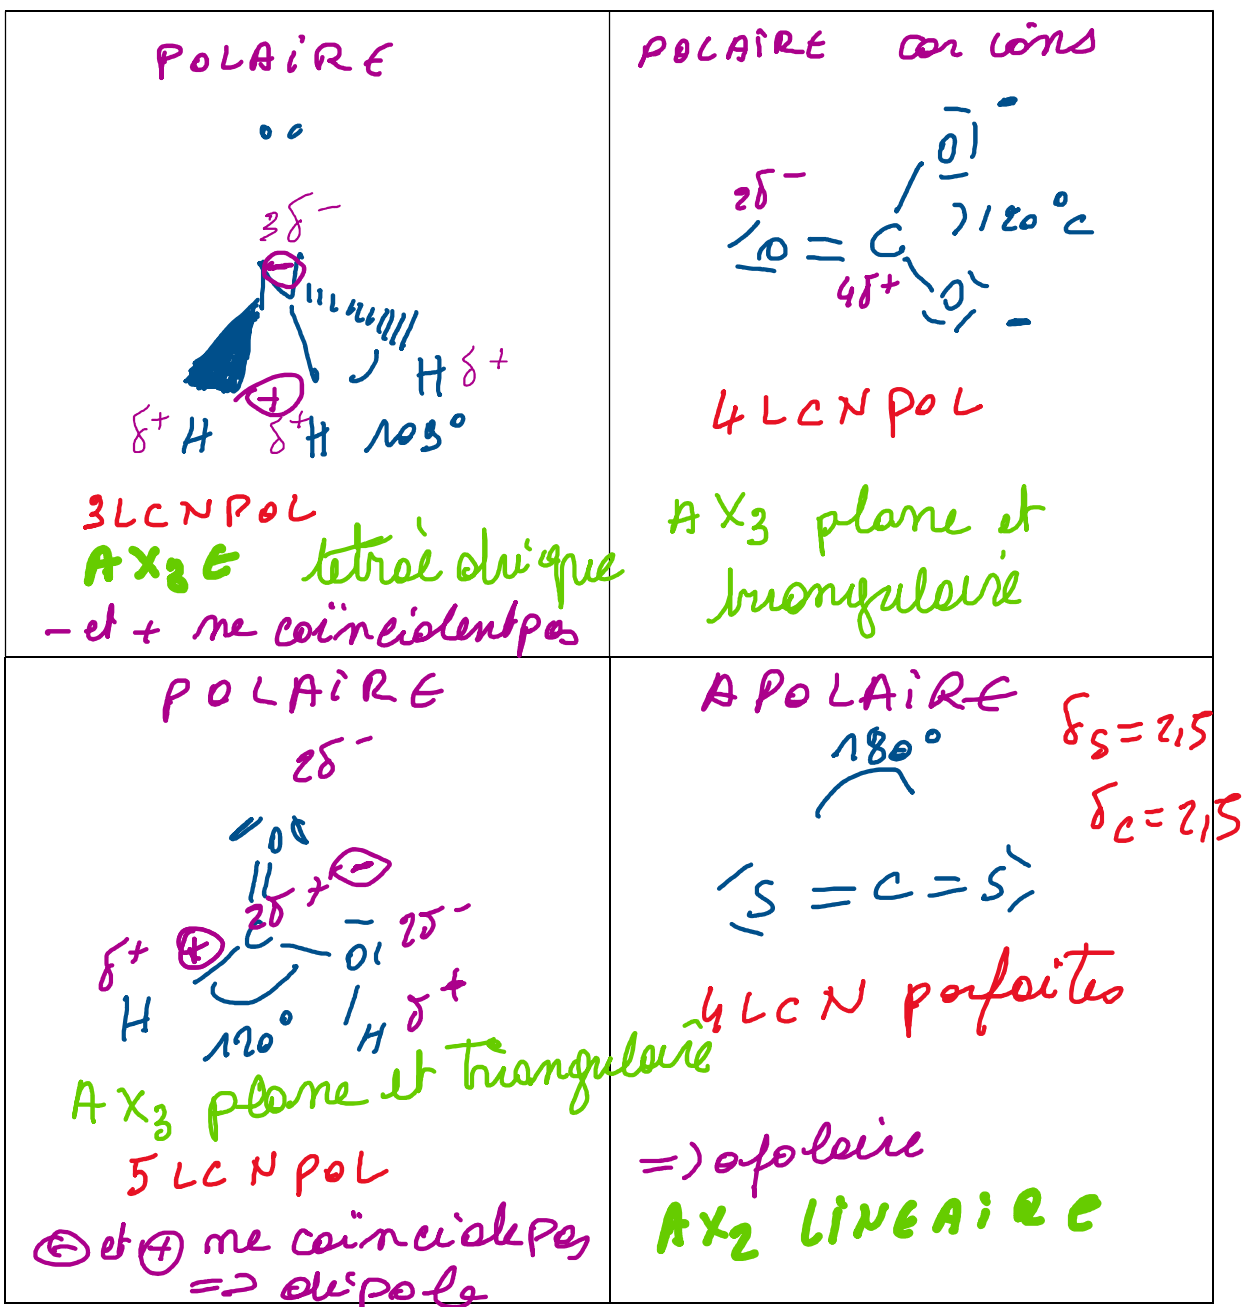 POLAIRE
3δ-
-
H δ+
+
δ+ H δ+ H 103°
3LCNPOL
AX3E tétraédrique
- et + ne coïncident pas
POLAIRE car ions
O -
2δ-
O = C )120°C
4δ+
O -
4LCNPOL
AX3 plane et
triangulaire
POLAIRE
2δ-
O
-
2δ+
δ+ + C O 2δ-
H 120° H δ+
AX3 plane et triangulaire
5LCNPOL
- et + ne coïncide pas
=> dipole
APOLAIRE
δS = 2,5
180°
δC = 2,5
S = C = S
4LCN parfaites
=> apolaire
AX2 LINEAIRE